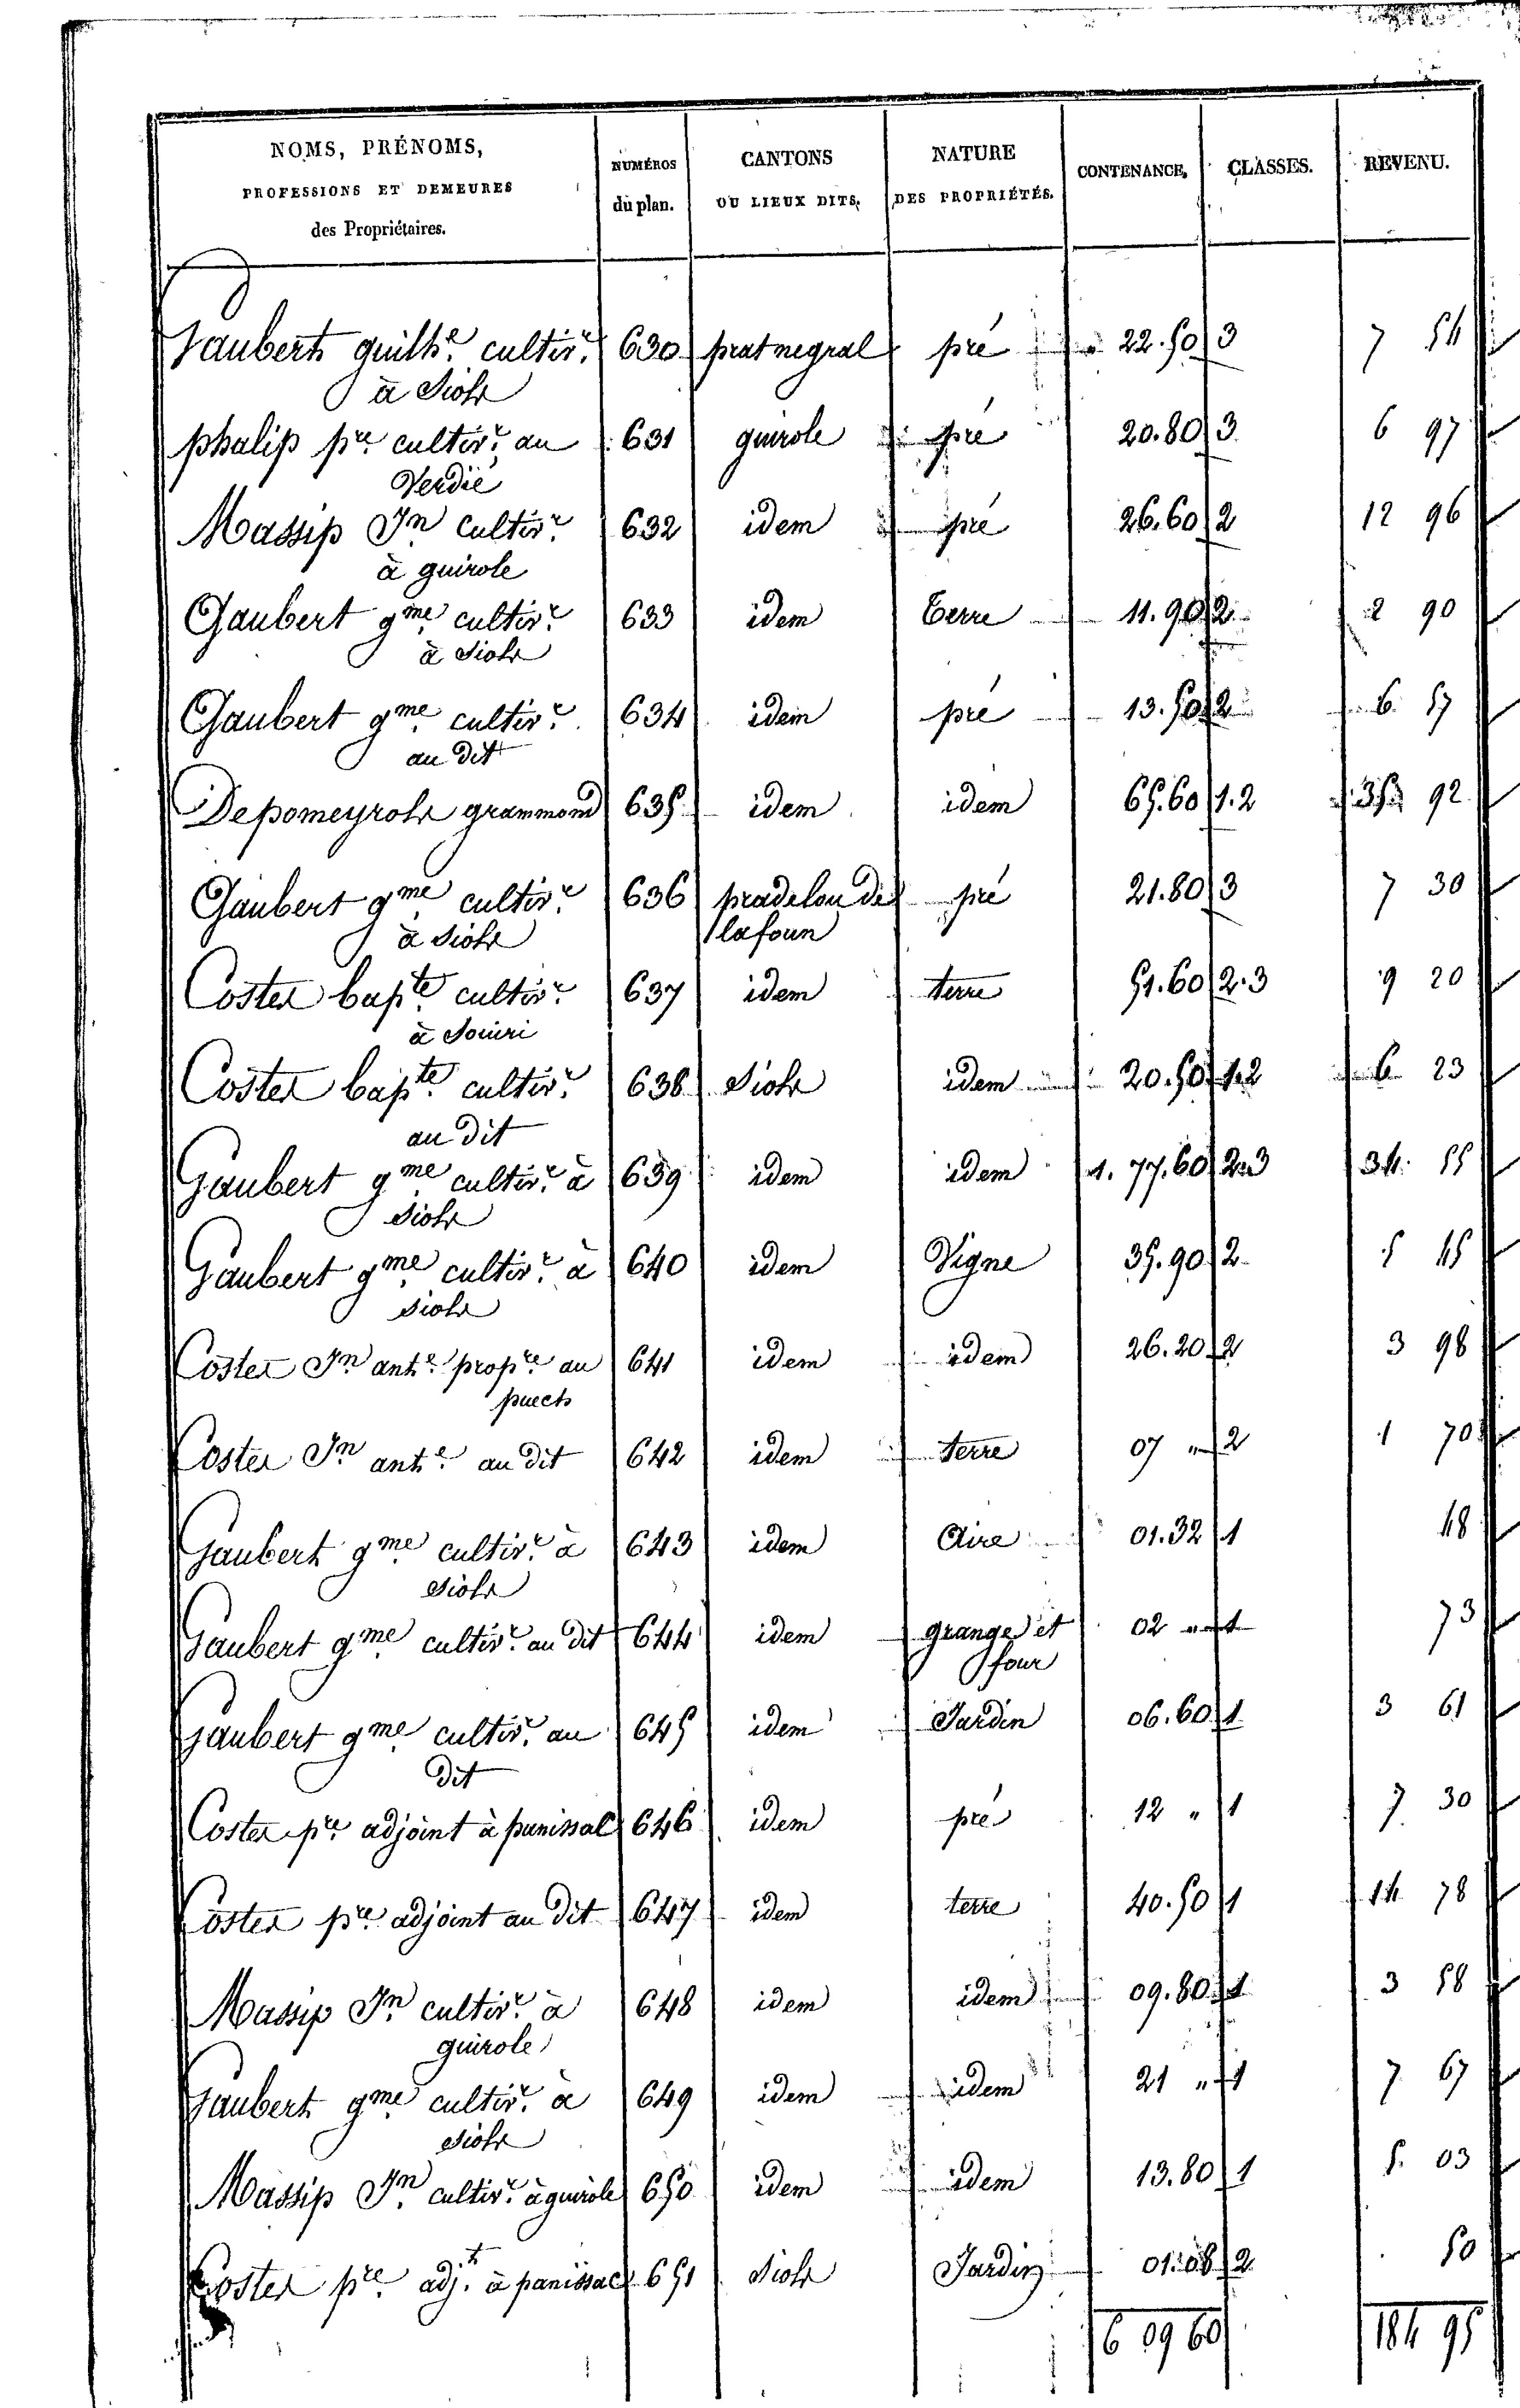 NOMS, PRÉNOMS, PROFESSIONS ET DEMEURES des Propriétaires. NUMÉROS du plan. CANTONS OU LIEUX DITS. NATURE DES PROPRIÉTÉS. CONTENANCE, CLASSES. REVENU.
Gaubert guilhe. cultivr. 630 prat negral pré 22.50 3 7 54
à Siols
phalip pre. cultivr. au 631 guirole pré 20.80 3 6 97
Verdié
Massip Jn cultivr. 632 idem pré 26.60 2 12 96
à guirole
Gaubert gme. cultivr. 633 idem Terre 11.90 2 2 90
à Siols
Gaubert gme. cultivr. 634 idem pré 13.50 2 6 57
au dit
Depomeyrols grammond 635 idem idem 65.60 1.2 35 92
Gaubert gme. cultivr. 636 pradelou de pré 21.80 3 7 30
à Siols lafoun
Costes bapte. cultivr. 637 idem terre 51.60 2.3 9 20
à Souiri
Costes bapte. cultivr. 638 Siols idem 20.50 1.2 6 23
au dit
Gaubert gme. cultivr. à 639 idem idem 1.77.60 2.3 34 55
Siols
Gaubert gme. cultivr. à 640 idem Vigne 35.90 2 5 45
Siols
Costes Jn. ante. propre. au 641 idem idem 26.20 2 3 98
puech
Costes Jn ante. au dit 642 idem terre 07 " 2 1 70
Gaubert gme. cultivr. à 643 idem Aire 01.32 1 48
Siols
Gaubert gme. cultivr. au dit 644 idem grange et 02 " 1 73
four
Gaubert gme. cultivr. au 645 idem Jardin 06.60 1 3 61
dit
Costes pre. adjoint à panissal 646 idem pré 12 " 1 7 30
Costes pre. adjoint au dit 647 idem terre 40.50 1 14 78
Massip Jn. cultivr. à 648 idem idem 09.80 1 3 58
guirole
Gaubert gme. cultivr. à 649 idem idem 21 " 1 7 67
Siols
Massip Jn. cultivr. à guirole 650 idem idem 13.80 1 5 03
Costes pre. adjt. à panissac 651 Siols Jardin 01.08 2 50
6 09 60 184 95